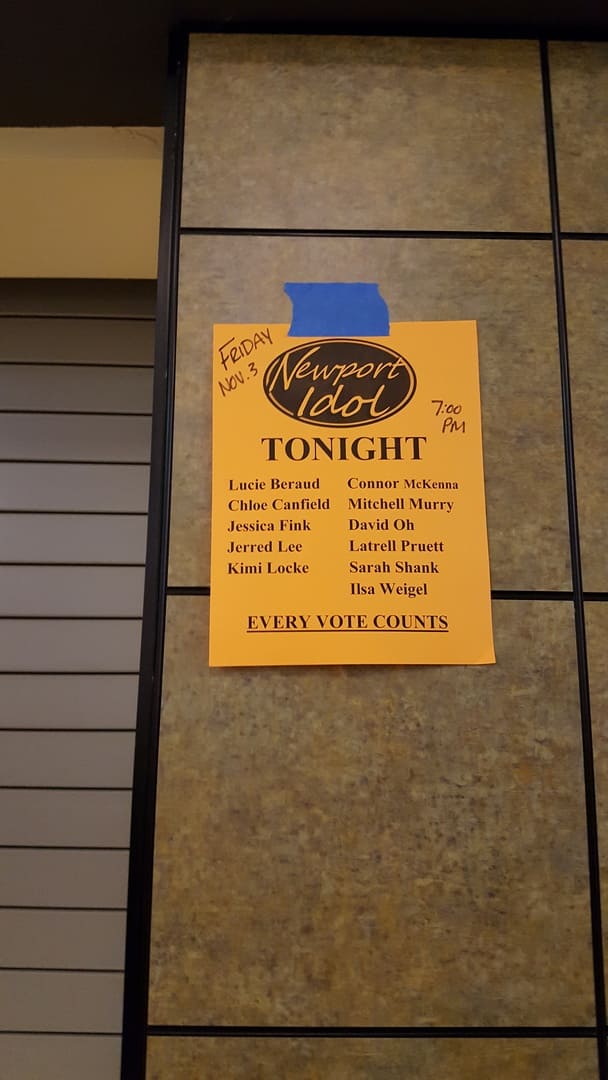 FRIDAY
NOV. 3
Newport
Idol
7:00
PM
TONIGHT
Lucie Beraud
Chloe Canfield
Jessica Fink
Jerred Lee
Kimi Locke
Connor McKenna
Mitchell Murry
David Oh
Latrell Pruett
Sarah Shank
Ilsa Weigel
EVERY VOTE COUNTS